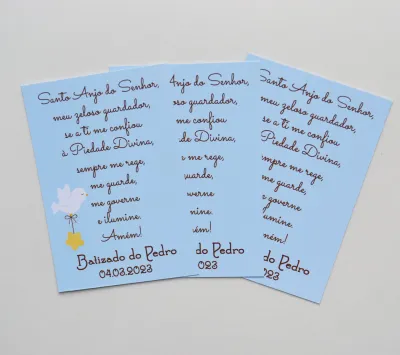 Santo Anjo do Senhor,
meu zeloso guardador,
se a ti me confiou
a Piedade Divina,
sempre me rege,
me guarde,
me governe
e ilumine.
Amém!
Batizado do Pedro
04.03.2023
Anjo do Senhor,
oso guardador,
me confiou
de Divina,
me rege,
uarde,
verne
nine.
ém!
do Pedro
023
Santo Anjo do Senhor,
meu zeloso guardador,
se a ti me confiou
Piedade Divina,
empre me rege,
me guarde,
e governe
ilumine.
mém!
do Pedro
2023